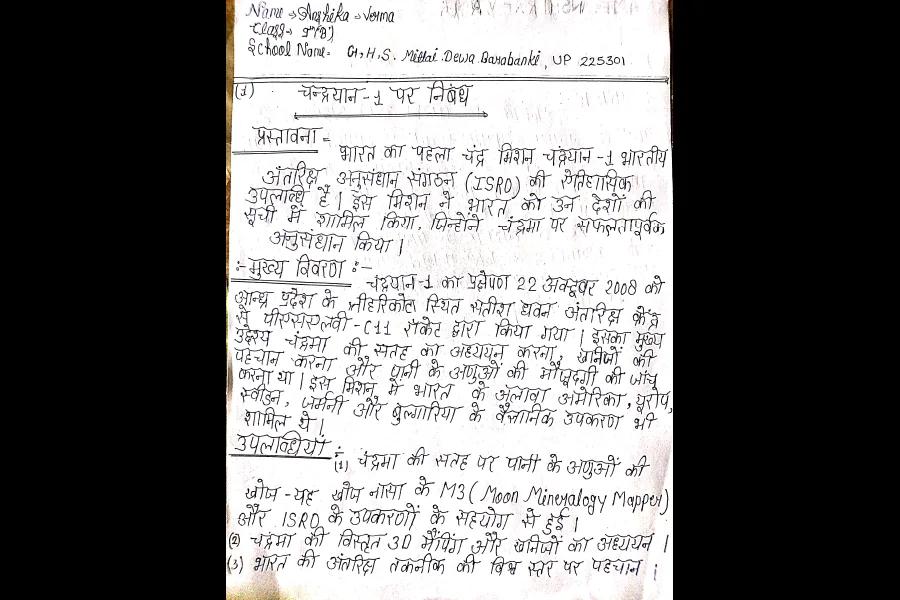 Name → Anshika → Verma
Class → 9th (B)
School Name = G,H,S. Mittai Dewa Barabanki, UP 225301
(1) चन्द्रयान-1 पर निबंध
प्रस्तावना =
भारत का पहला चंद्र मिशन चंद्रयान-1 भारतीय
अंतरिक्ष अनुसंधान संगठन (ISRO) की ऐतिहासिक
उपलब्धि है। इस मिशन ने भारत को उन देशों की
सूची में शामिल किया, जिन्होंने चंद्रमा पर सफलतापूर्वक
अनुसंधान किया।
:- मुख्य विवरण :-
चंद्रयान-1 का प्रक्षेपण 22 अक्टूबर 2008 को
आन्ध्र प्रदेश के श्रीहरिकोटा स्थित सतीश धवन अंतरिक्ष केन्द्र
से पीएसएलवी-C11 रॉकेट द्वारा किया गया। इसका मुख्य
उद्देश्य चंद्रमा की सतह का अध्ययन करना, खनिजों की
पहचान करना और पानी के अणुओं की मौजूदगी की जांच
करना था। इस मिशन में भारत के अलावा अमेरिका, यूरोप,
स्वीडन, जर्मनी और बुल्गारिया के वैज्ञानिक उपकरण भी
शामिल थे।
उपलब्धियां :-
(1) चंद्रमा की सतह पर पानी के अणुओं की
खोज - यह खोज नासा के M3 (Moon Mineralogy Mapper)
और ISRO के उपकरणों के सहयोग से हुई।
(2) चंद्रमा की विस्तृत 3D मैपिंग और खनिजों का अध्ययन।
(3) भारत की अंतरिक्ष तकनीक की विश्व स्तर पर पहचान।